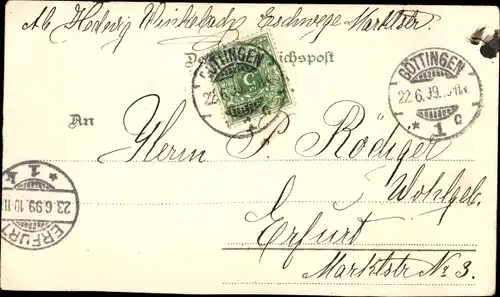 Ab. Hedwig Winkelbach Eschwege Marktstr.
Reichspost
GÖTTINGEN
22.6.99
GÖTTINGEN
22.6.99
* 1 c
An
Herrn P. Rödiger
Wohlgeb.
Erfurt
Marktstr No 3.
* 1 k
23.6.99.10-11
ERFURT